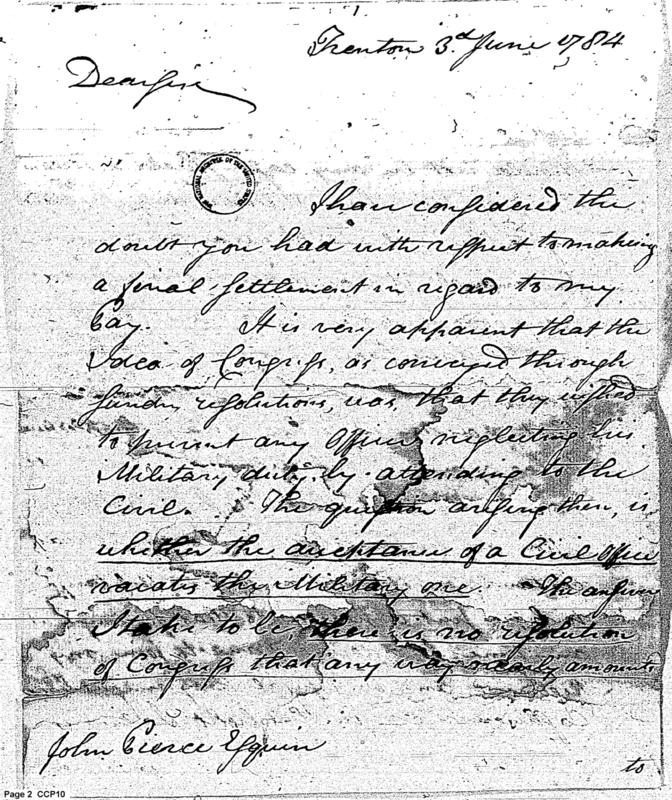 Trenton 3.d June 1784
Dear Sire
THE NATIONAL ARCHIVES OF THE UNITED STATES
I have considered the
doubt you had with respect to making
a final settlement in regard to my
Pay. It is very apparent that the
Idea of Congress, as conveyed through
sundry resolutions, was, that they wished
to prevent any Officer neglecting his
Military duty, by attending to the
Civil. The question arising then, is,
whether the acceptance of a Civil Office
vacates the Military one. The answer
I take to be, there is no resolution
of Congress that any way nearly amounts
John Pierce Esquire
to
Page 2 CCP10